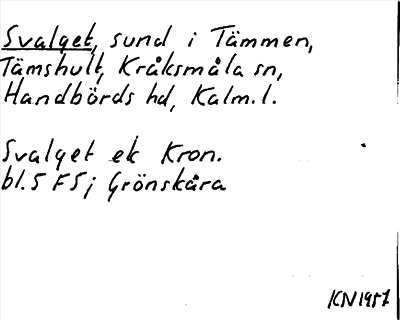 Svalget, sund i Tämmen,
Tämshult, Kråksmåla sn,
Handbörds hd, Kalm. l.
Svalget ek Kron.
bl. 5 FS; Grönskåra
KN 1957